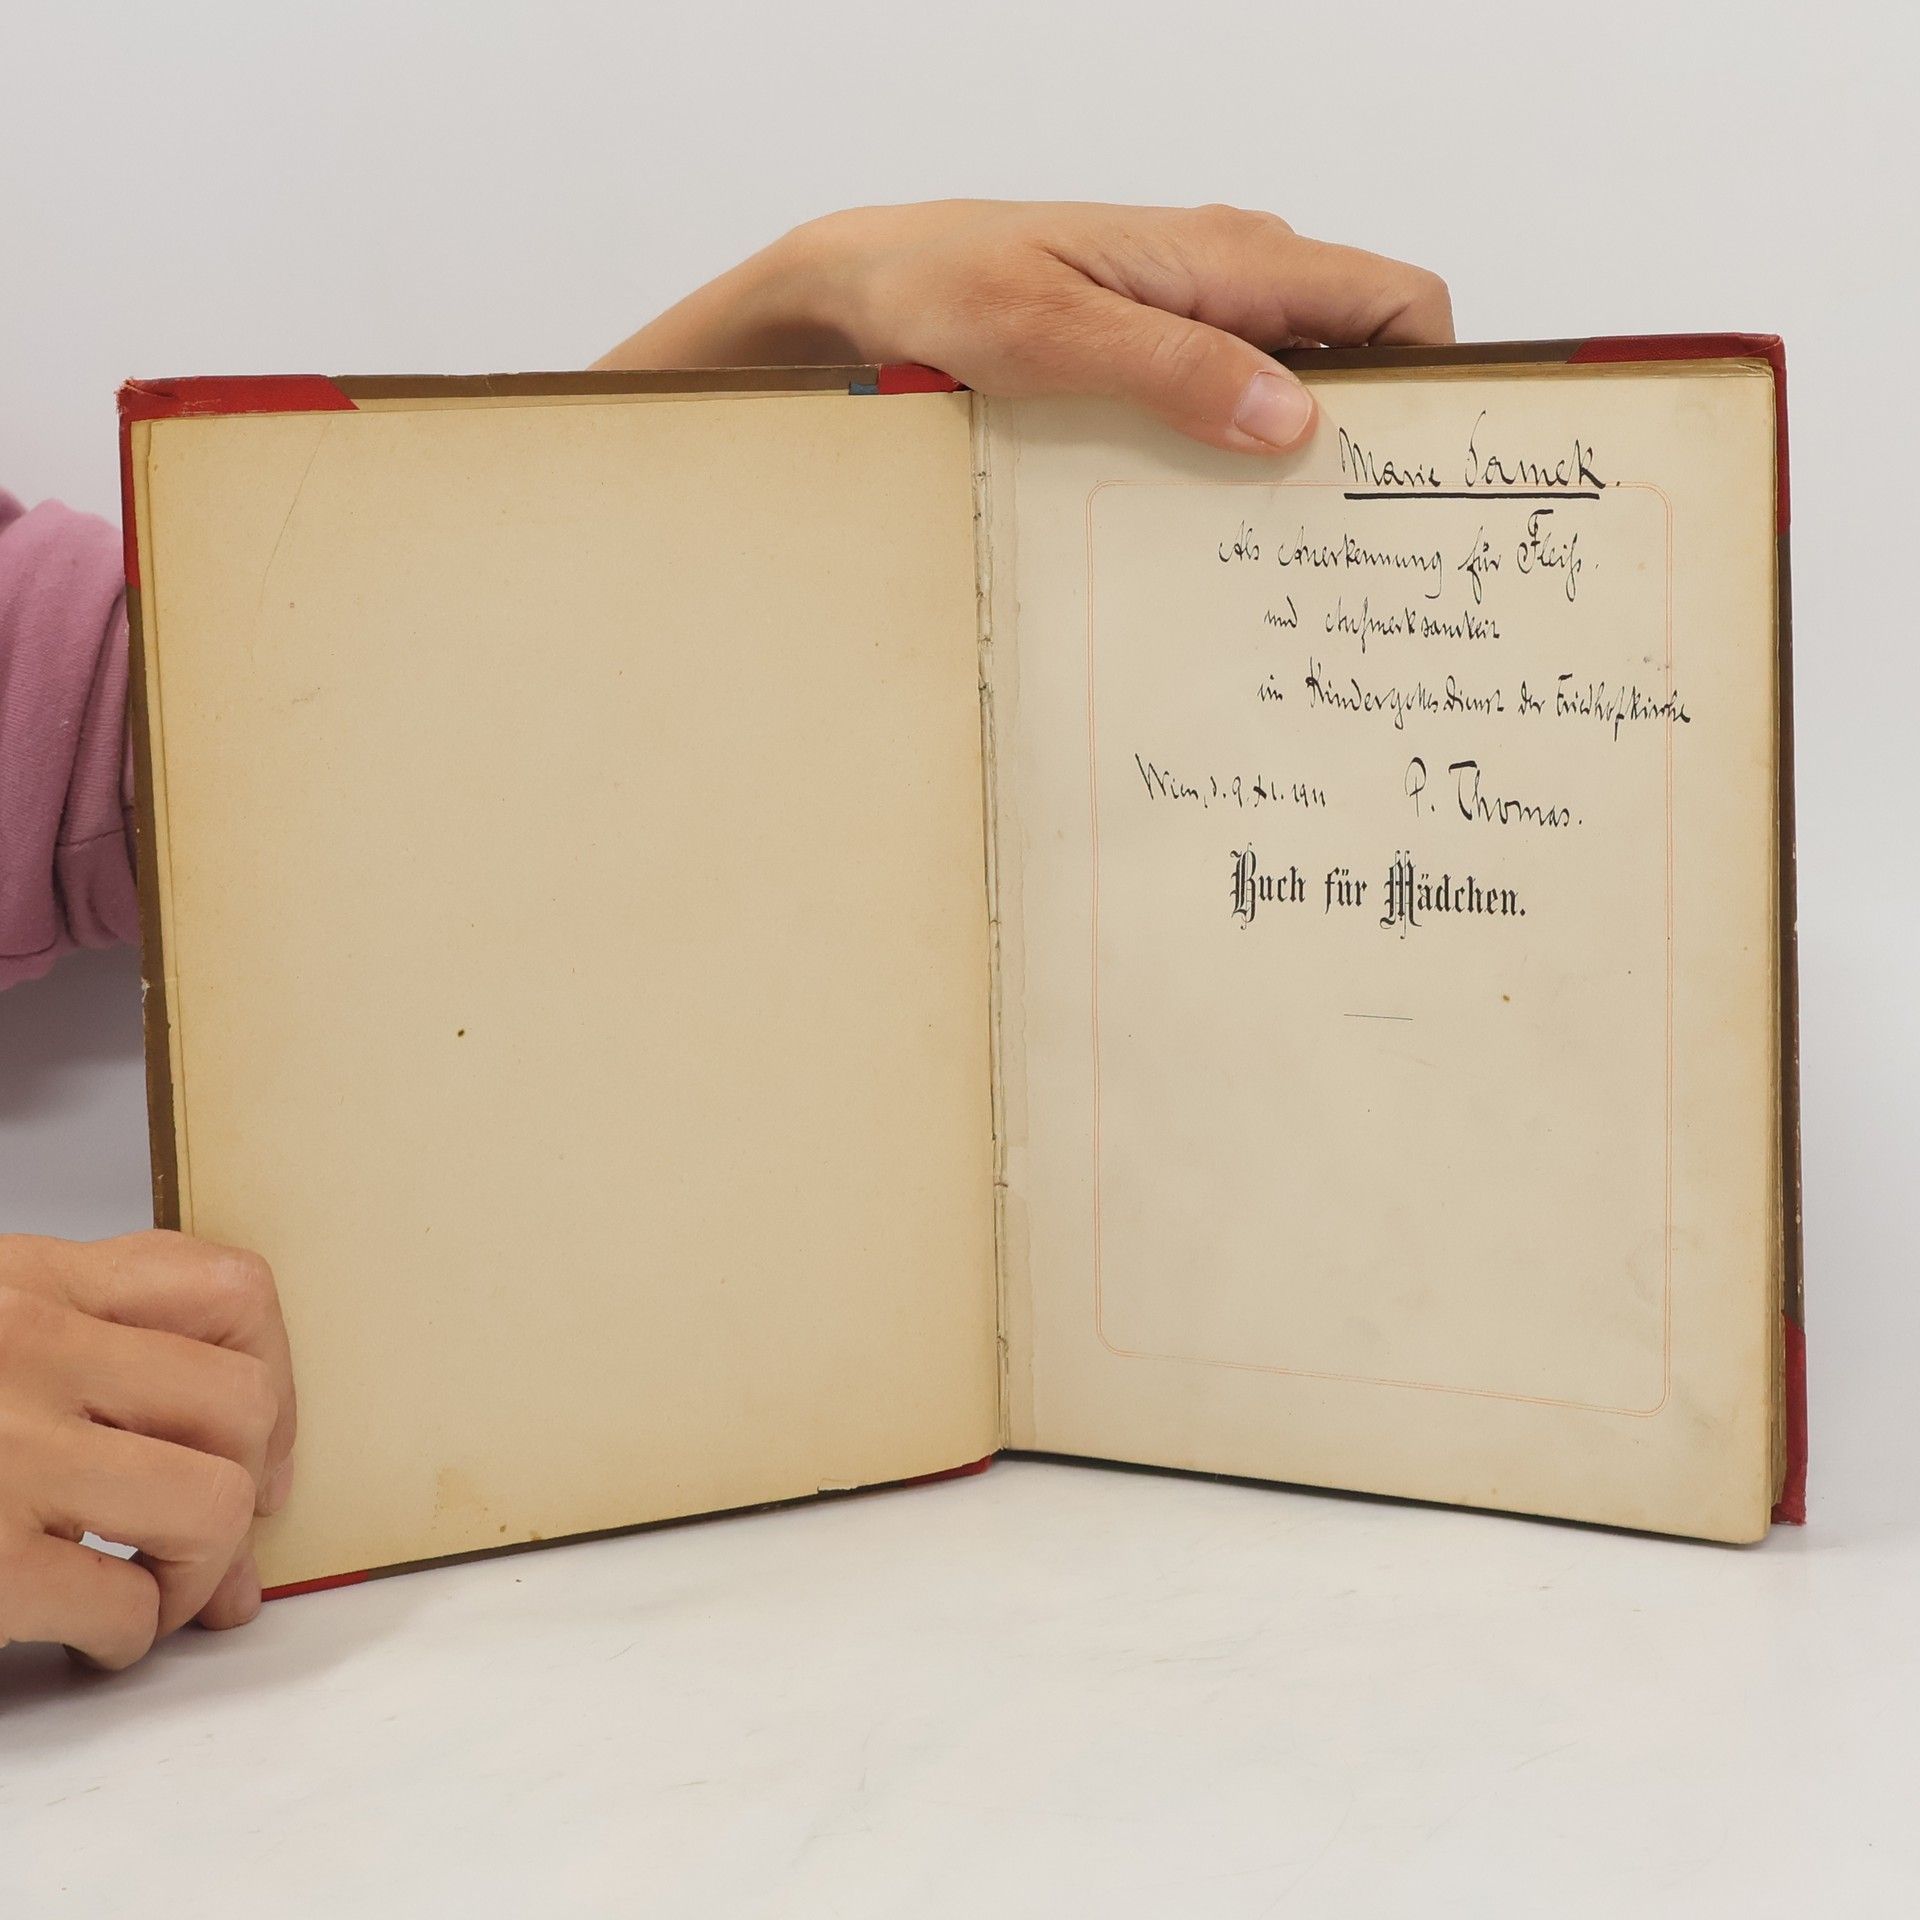 Marie Samek.
Als Anerkennung für Fleiß.
und Aufmerksamkeit
im Kindergottesdienst der Friedhofkirche
Wien, d. 9. XI. 1911 P. Thomas.
Buch für Mädchen.